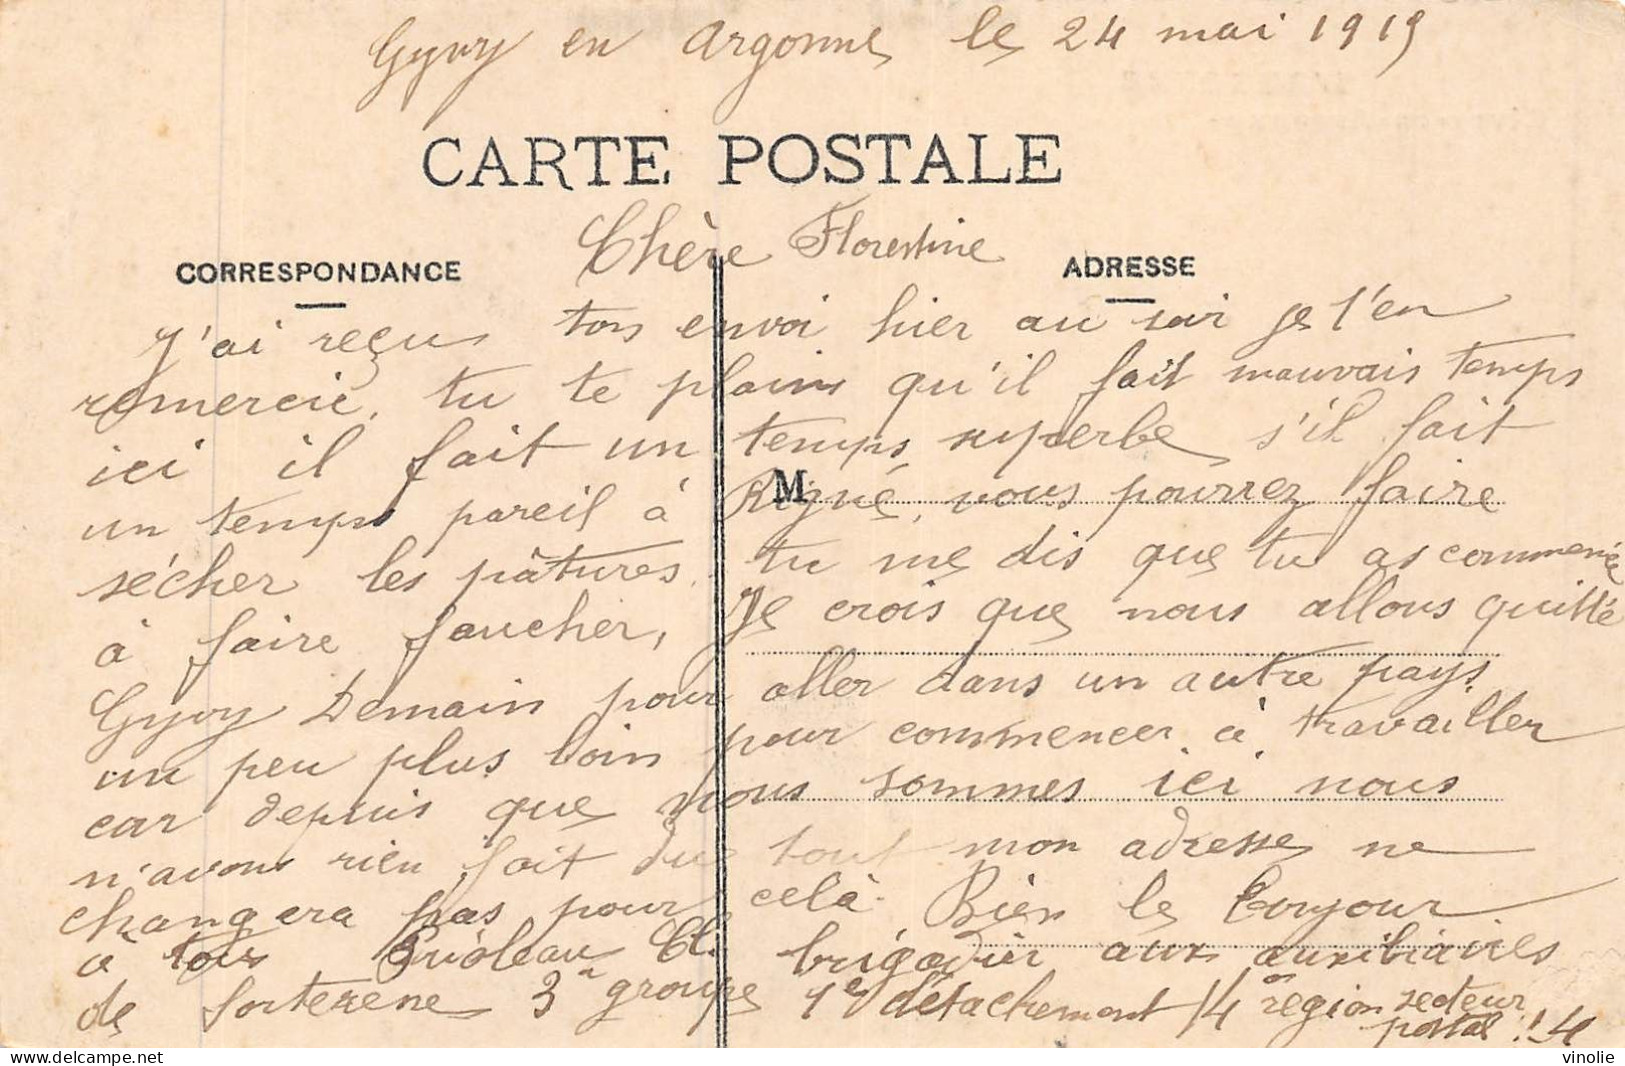 Gyvry en Argonne le 24 mai 1915
CARTE POSTALE
Chère Florestine
CORRESPONDANCE
ADRESSE
J'ai reçus ton envoi hier au soir je t'en
remercie, tu te plains qu'il fait mauvais temps
ici il fait un temps superbe s'il fait
un temps pareil à Rigné, vous pourrez faire
M
sécher les pâtures. tu me dis que tu as commencé
à faire faucher, Je crois que nous allons quitté
Gyvry Demain pour aller dans un autre pays
un peu plus loin pour commencer à travailler
car depuis que nous sommes ici nous
n'avons rien fait du tout mon adresse ne
changera pas pour celà. Bien le bonjour
à tous brigadier aux auxiliaires
de 3e groupe 1er détachement 14 region secteur
postal
vinolie